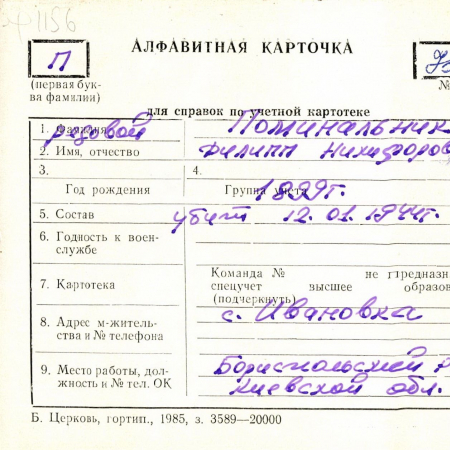 ф 1156
П
АЛФАВИТНАЯ КАРТОЧКА
(первая бук-
ва фамилии)
№
для справок по учетной картотеке
1. Фамилия Поминальник
рядовой
2. Имя, отчество Филипп Никифоров
3. 4.
Год рождения Группа учета 1899г.
5. Состав убит 12.01.1944г.
6. Годность к воен-
службе
Команда № не предназн
7. Картотека спецучет высшее образов
(подчеркнуть)
8. Адрес м-житель-
ства и № телефона
с. Ивановка
9. Место работы, дол-
жность и № тел. ОК
Бориспольский р
Киевской обл.
Б. Церковь, гортип., 1985, з. 3589—20000